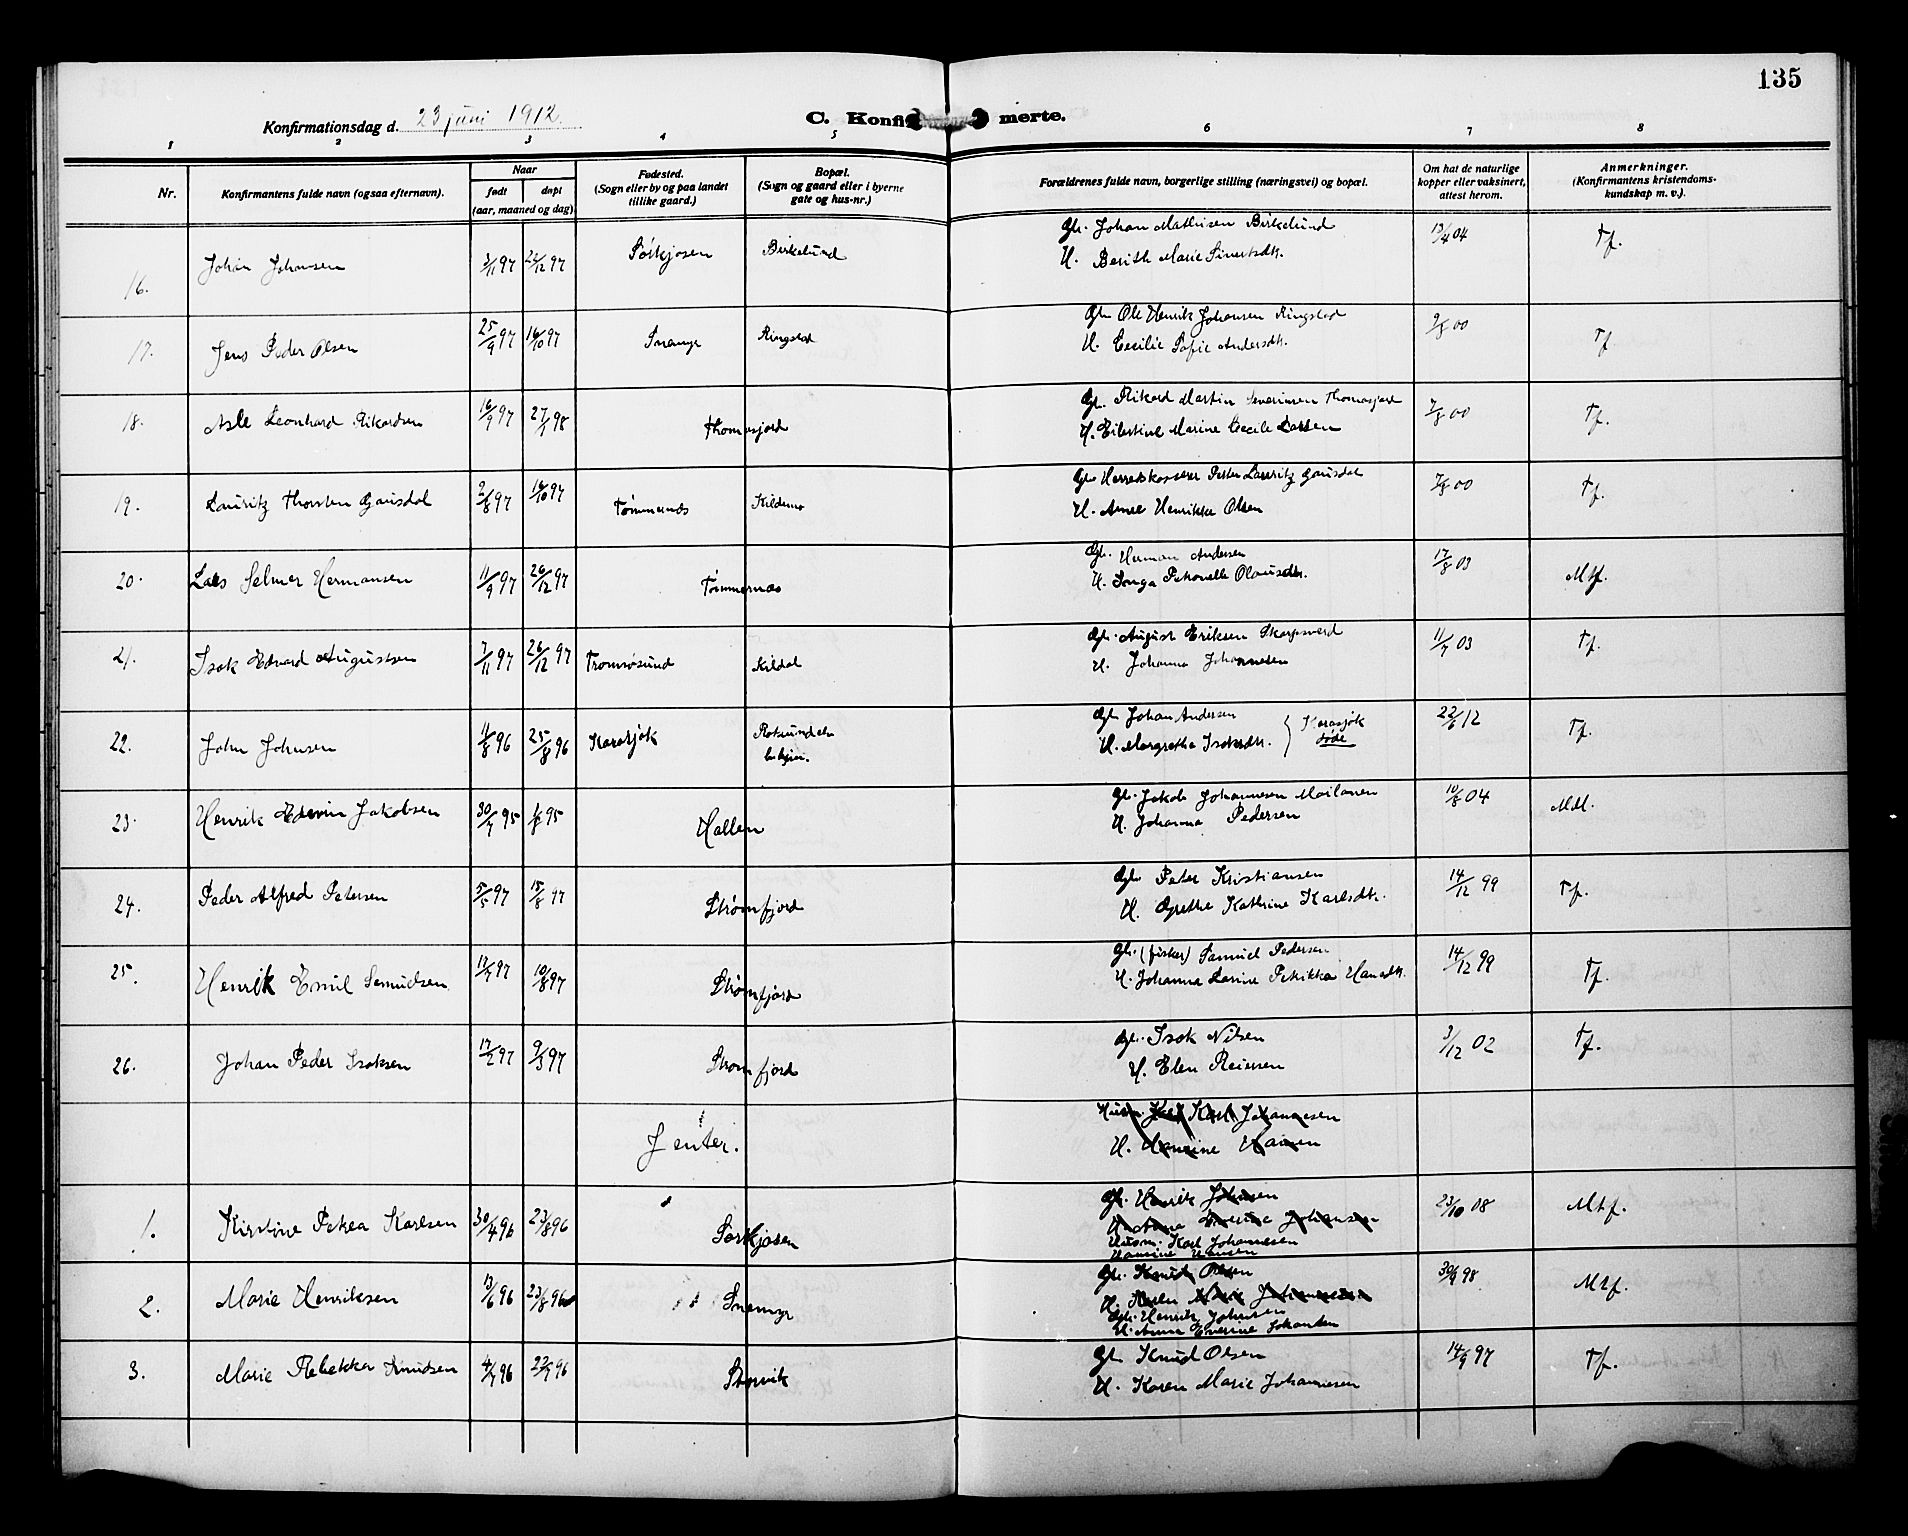 135
Konfirmationsdag d. 23 juni 1912.
C. Konfi merte.
1 2 3 4 5 6 7 8
Nr.
Konfirmantens fulde navn (ogsaa efternavn).
Naar
født døpt
(aar, maaned og dag)
Fødested.
(Sogn eller by og paa landet
tillike gaard.)
Bopæl.
(Sogn og gaard eller i byerne
gate og hus-nr.)
Forældrenes fulde navn, borgerlige stilling (næringsvei) og bopæl.
Om hat de naturlige
kopper eller vaksinert,
attest herom.
Anmerkninger.
(Konfirmantens kristendoms-
kundskap m. v.).
16. Johan Johansen 3/11 97 22/12 97 Sørkjosen Birkelund
Gh. Johan Mathisen Birkelund
H. Berith Marie Sivertsdtr. 13/4 04 Tf.
17. Jens Peder Olsen 25/9 97 16/10 97 Snemyr Ringstad
Gh. Ole Henrik Johansen Ringstad
H. Cecilie Sofie Andersdtr. 9/8 00 Tf.
18. Asle Leonhard Rikardsen 16/9 97 27/1 98 Thomasjord
Gh. Rikard Martin Severinsen Thomasjord
H. Eilertine Marine Cecile Larsen 7/8 00 Tf.
19. Lauritz Thorsten Gausdal 2/8 97 14/10 97 Tømmernæs Kildemo
Gh. Herredskasserer Petter Lauritz Gausdal
H. Anne Henrikke Olsen 7/8 00 Tf.
20. Lars Selmer Hermansen 11/9 97 26/12 97 Tømmernæs
Gh. Herman Andersen
H. Inga Petronelle Olausdtr. 17/8 03 Mtf.
21. Isak Edvard Augustsen 7/11 97 26/12 97 Tromsøsund Kildal
Gh. August Eriksen Skarpsverd
H. Johanna Johannesen 11/7 03 Tf.
22. John Johnsen 11/8 96 25/8 96 Karasjok Rotsundelv
Gh. Johan Andersen
H. Margrethe Isaksdtr. } Karasjok
døde 22/6 12 Tf.
23. Henrik Edevin Jakobsen 30/7 95 1/8 95 Hallen
Gh. Jakob Johannesen Mailanen
H. Johanna Pedersen 10/8 04 MM.
24. Peder Alfred Petersen 5/5 97 15/8 97 Strømfjord
Gh. Peter Kristiansen
H. Grethe Kathrine Karlsdtr. 14/12 99 Tf.
25. Henrik Emil Samuelsen 17/7 97 10/8 97 Strømfjord
Gh. (fisker) Samuel Pedersen
H. Johanna Larine Petrikka Hansdtr. 14/12 99 Tf.
26. Johan Peder Isaksen 17/2 97 9/3 97 Strømfjord
Gh. Isak Nilsen
H. Elen Reiersen 3/12 02 Tf.
Jenter.
Husm. Karl Johannesen
H. Hansine Hansen
1. Kirstine Petrea Karlsen 30/4 96 23/8 96 Sørkjosen
Gh. Henrik Johansen
H. Anna Everine Johansen
Husm. Karl Johannesen
Hansine Hansen 23/10 08 Mtf.
2. Marie Henriksen 13/6 96 23/8 96 Snemyr
Gh. Knud Olsen
H. Karen Marie Johannesen
Gh. Henrik Johansen
H. Anna Everine Johansen 30/9 98 Mtf.
3. Marie Rebekka Knudsen 4/7 96 22/7 96 Storvik
Gh. Knud Olsen
H. Karen Marie Johannesen 14/9 97 Tf.